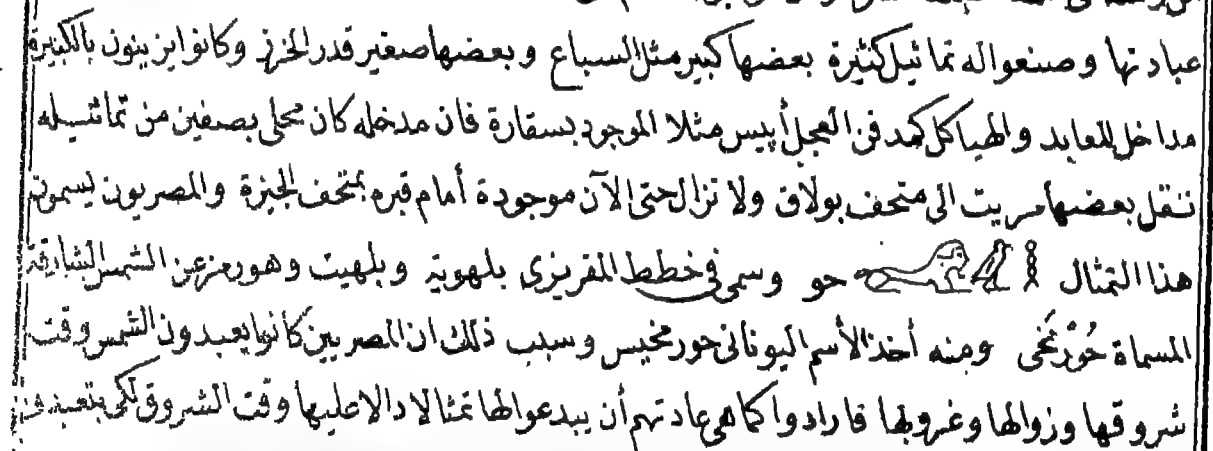 عبادتها وصنعوا له تماثيل كثيرة بعضها كبير مثل السباع وبعضها صغير قدر الخرز وكانوا يزينون بالكبيرة
مداخل المعابد والهياكل كمدفن العجل أبيس مثلا الموجود بسقارة فان مدخله كان محلى بصفين من تماثيله
نقل بعضها مريت الى متحف بولاق ولا تزال حتى الآن موجودة أمام قبره بمتحف الجيزة والمصريون يسمون
هذا التمثال حو وسمى فى خطط المقريزى بلهوية وبلهيت وهو رمز عن الشمس الشارقة
المسماة حُورْنَخى ومنه أخذ الأسم اليونانى حورمخيس وسبب ذلك ان المصريين كانوا يعبدون الشمس وقت
شروقها وزوالها وغروبها فارادوا كما هى عادتهم أن يبدعوا لها تمثالا دالا عليها وقت الشروق لكى